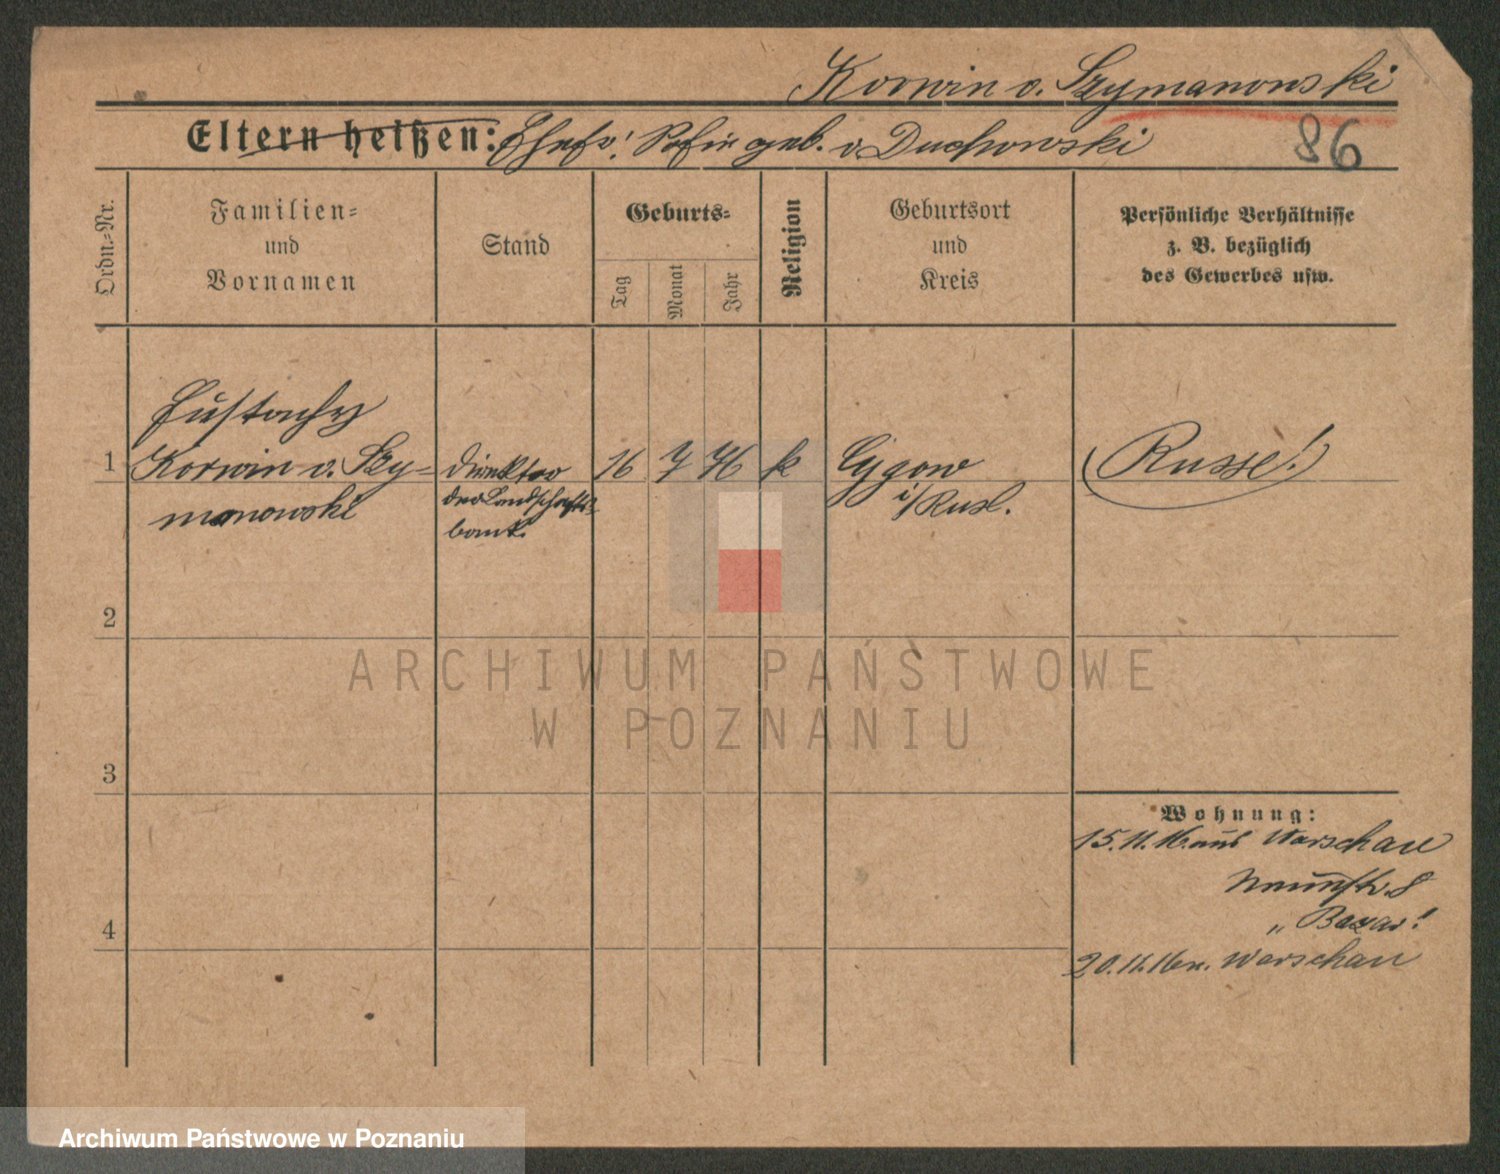 Korwin v. Szymanowski
Eltern heißen: Ehefr! Sofie geb. v Duchowski
86
Ordn.-Nr.
Familien-
und
Vornamen
Stand
Geburts-
Tag
Monat
Jahr
Religion
Geburtsort
und
Kreis
Persönliche Verhältnisse
z. B. bezüglich
des Gewerbes usw.
Eustachy
1 Korwin v. Szy- Direktor 16 7 76 k Cygow (Russe!)
manowski der Landschafts- i/Rusl.
bank.
2
3
Wohnung:
15.11.16 aus Warschau
8
4 „Bazar"!
20.11.16 n. Warschau
ARCHIWUM PAŃSTWOWE
W POZNANIU
Archiwum Państwowe w Poznaniu